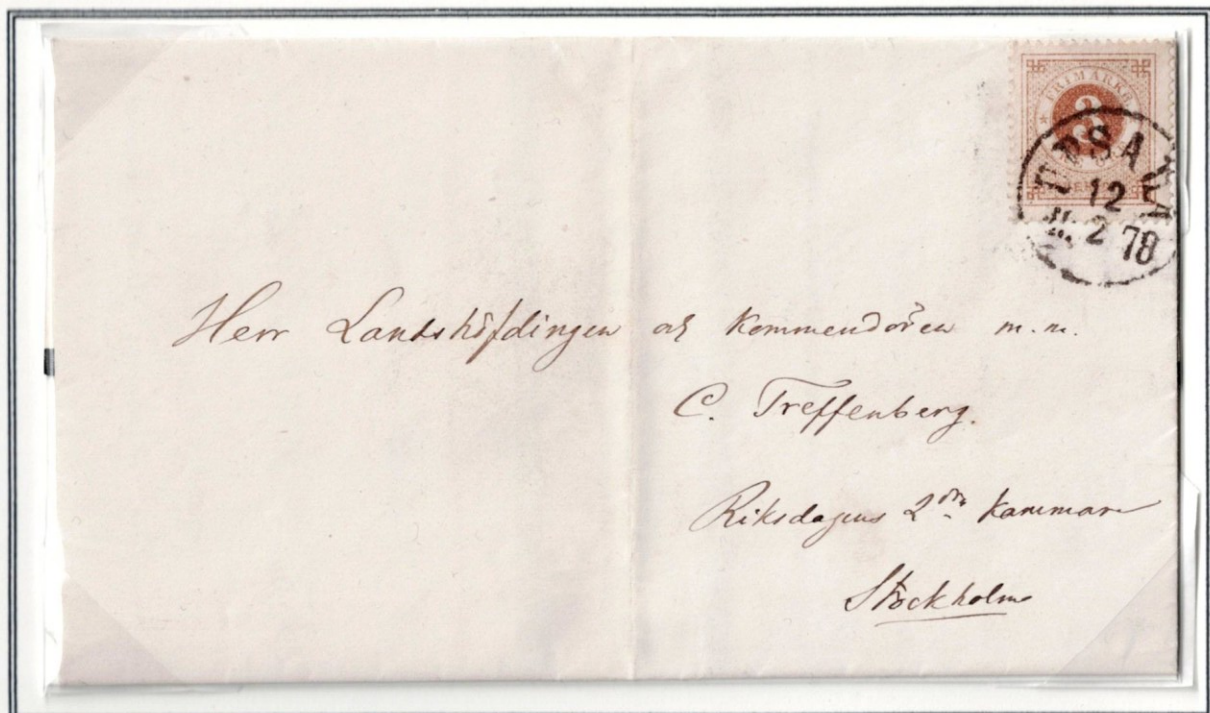 FRIMÄRKE
3
UPSALA
12
2 78
Herr Landshöfdingen och Kommendören m.m.
C. Treffenberg.
Riksdagens 2dra Kammare
Stockholm